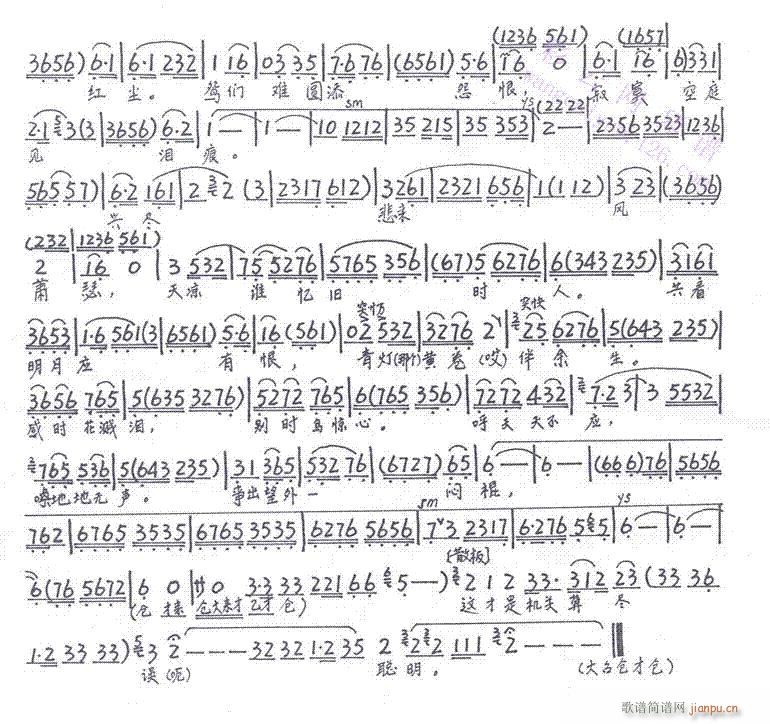 (1236 561) (1657)
3656) 6·1 | 6·1 232 | 1 16 | 03 35 | 7·6 76 | (6561) 5·6 | 16 0 | 6·1 16 | 6)331 |
红尘。 鸳们 难圆添 怨恨, 寂寞 空庭
2·1 3(3 | 3656) 6·2 | 1 — | 1 — | 10 1212 | 35 215 | 35 353 ) | 2 — | 2356 3523 | 1236
见 泪痕。
565 57) | 6·2 161 | 2 2 (3 | 2317 612) | 3261 | 2321 656 | 1 (1 12) | 3 23 | (3656)
共冬 悲来 风
(232 | 1236 561)
2 | 16 0 | 3 532 | 75 5276 | 5765 356 | (67)5 6276 | 6(343 235) | 3161 |
萧瑟, 天凉 谁忆旧 时 人。 共看
3653 | 1·6 561(3 | 6561) 5·6 | 16 (561) | 02 532 | 3276 2 | 25 6276 | 5(643 235) |
明月应 有恨, 青灯(那个)黄卷(哎)伴余 生。
3656 765 | 5(635 3276) | 5272 765 | 6(765 356) | 7272 432 | 7·2 3 | 3 5532 |
感时花溅泪, 别时鸟惊心。 呼天天不应,
765 536 | 5(643 235) | 31 365 | 532 76 | (6727) 65 | 6 — | 6 — | (666)76 | 5656
嚎地地无声。 争出望外一 闷棍,
762 | 6765 3535 | 6765 3535 | 6276 5656 | 7 3 2317 | 6·276 5 5 | 6 — | 6 —
[散板]
6(76 5672 | 6 0 | 0 3·3 33 221 66 5 — —) 2 1 2 33· 312 23 (33 36
(仓 才来 仓大来才 乙才 仓) 这才是机关算 尽
1·2 33 33) 3 2 — — — 32 32 1·2 35 2 2 2 111 2 — — —
误(呃) 聪明。 (大台仓才仓)
歌谱简谱网 jianpu.cn